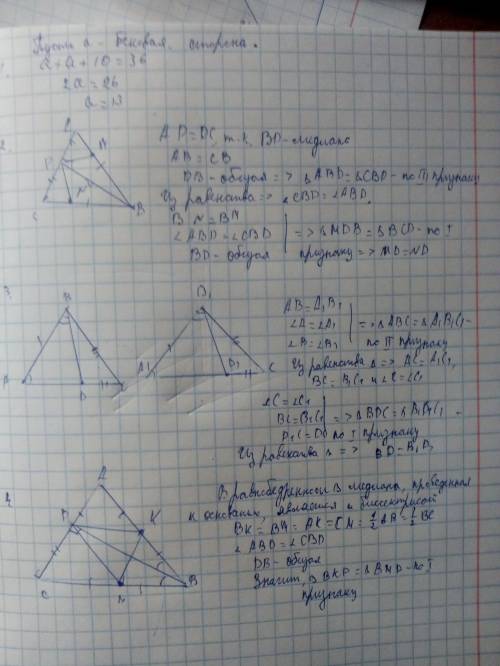 Пусть a - боковая сторона.
1.
a + a + 10 = 36
2a = 26
a = 13
2.
AD = DC, т.к. BD - медиана
AB = CB
DB - общая => ΔABD = ΔCBD - по III признаку
Из равенства => ∠CBD = ∠ABD.
BN = BM
∠ABD = ∠CBD => ΔMDB = ΔBCD - по I
BD - общая признаку => MD = ND
3.
B B1
A D A1 D1 C
AB = A1B1
∠A = ∠A1 => ΔABC = ΔA1B1C1 -
∠B = ∠B1 по II признаку
Из равенства Δ => AC = A1C1,
BC = B1C1 и ∠C = ∠C1
∠C = ∠C1
BC = B1C1 => ΔBDC = ΔB1D1C1 -
D1C = DC по I признаку
Из равенства Δ => BD - B1D1
4.
В равнобедренном Δ медиана, проведенная
к основанию, является и биссектрисой
BK = BM = AK = CM = 1/2 AB = 1/2 BC
∠ABD = ∠CBD
DB - общая
Значит, ΔBKD = ΔBMD - по I
признаку